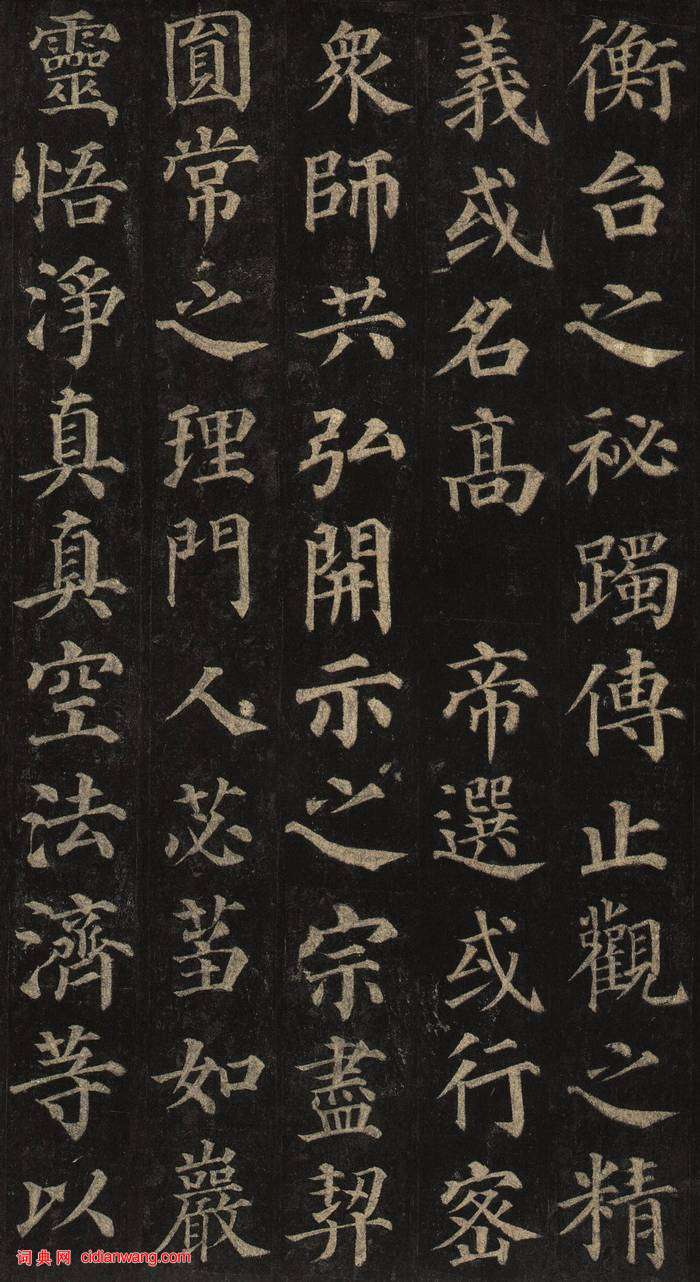 衡台之祕躅傳止觀之精
義或名高 帝選或行密
眾師共弘開示之宗盡契
圓常之理門人苾蒭如巖
靈悟淨真真空法濟等以
词典网 cidianwang.com